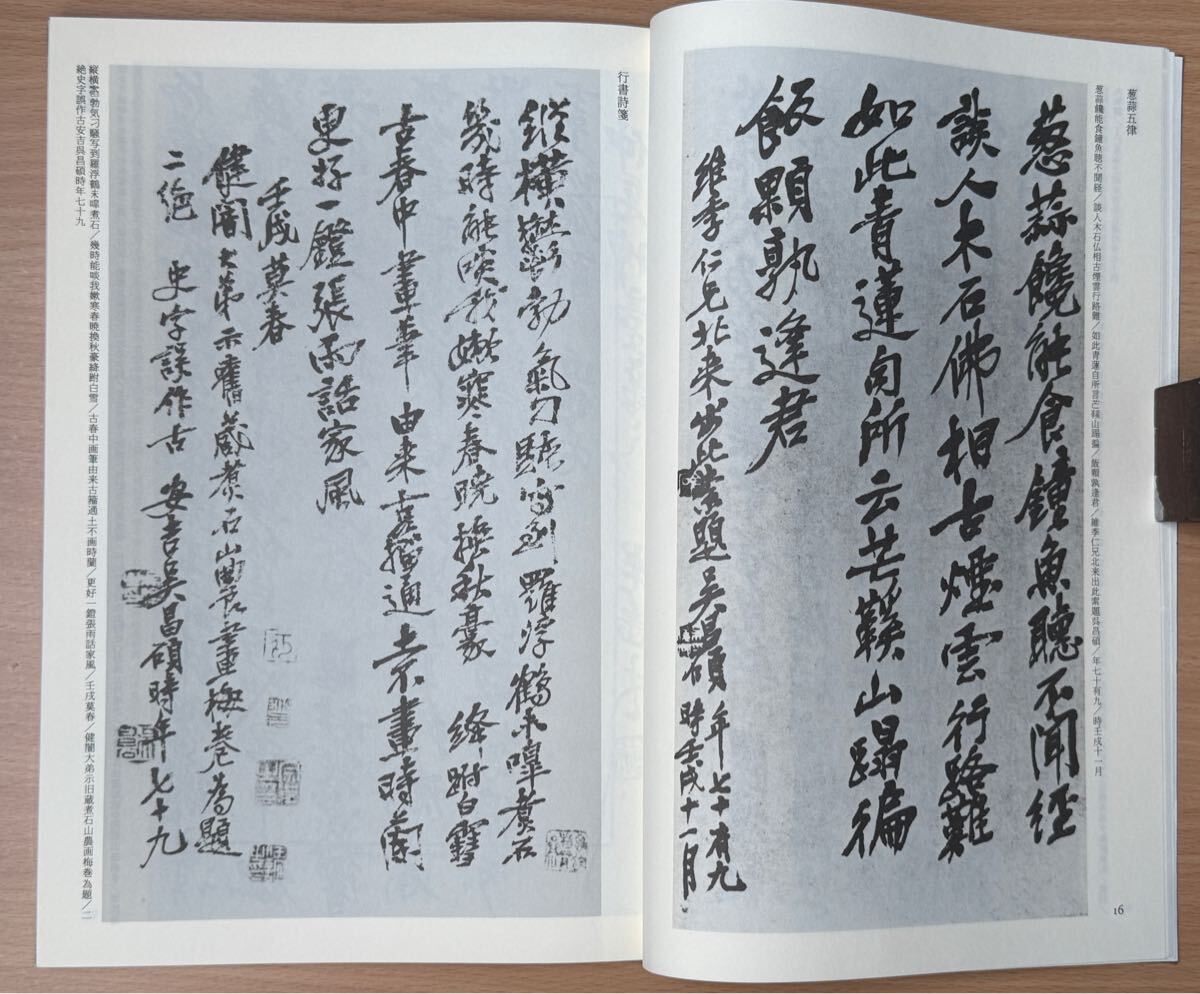 葱蒜五律
葱蒜饞能食鐘魚聴不聞経／談人木石仏相古煙雲行路難／如此青蓮自所言芒鞵山蹋徧／飯顆孰逢君／維季仁兄北来出此索題呉昌碩／年七十有九／時壬戌十一月
葱蒜饞能食鐘魚聽不聞經
談人木石佛相古煙雲行路難
如此青蓮自所云芒鞵山蹋徧
飯顆孰逢君
維季仁兄北来出此索題吴昌碩年七十有九
時壬戌十一月
16
行書詩箋
縦横勃気刁騒写到羅浮鶴未嘷煮石／幾時能啖我嫩寒春暁換秋豪絳跗白雪／古春中画筆由来古籀通士不画時蘭／更好一鐙張雨話家風／壬戌莫春／健闇大弟示旧蔵煮石山農画梅巻為題／二
絶史字誤作古安吉呉昌碩時年七十九
縱横鬱勃氣刁騷寫到羅浮鶴未嘷煮石
幾時能啖我嫩寒春曉換秋豪絳跗白雪
古春中畫筆由来古籀通
畫時蘭
更好一鐙張雨話家風
壬戌莫春
健闇大弟示舊蔵煮石山農畫梅卷為題
二絶 史字誤作古 安吉吴昌碩時年七十九